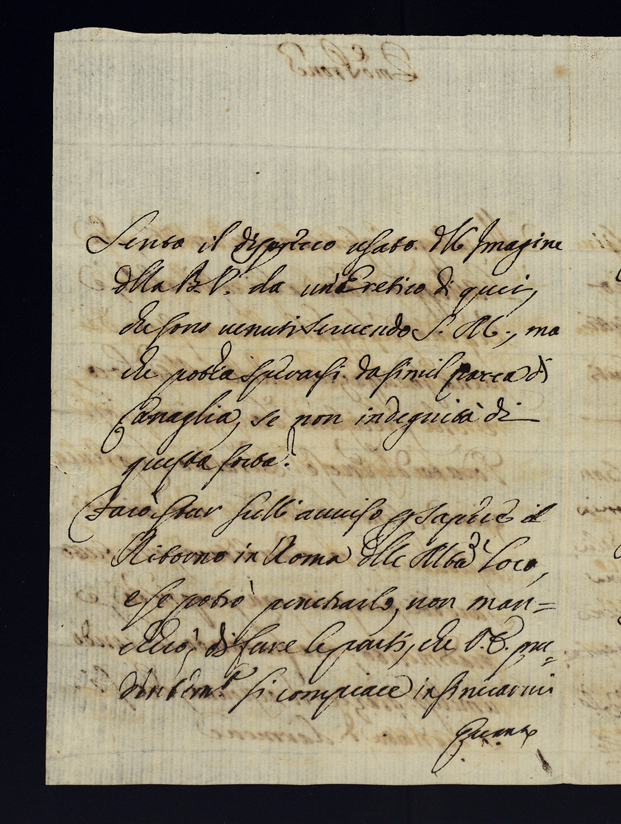 Sento il disprezzo usato dell'Imagine
della B.V. da un'Eretico di quei,
che sono venuti servendo S. M., ma
che potea sperarsi da simil razza di
Canaglia, se non indegnità di
questa sorta?
Farò star sull'avviso p sapere il
Ritorno in Roma dell'Alba Loro,
e se potrò penetrarlo, non man=
cherò di fare le parti, che V.E. pru=
dentem.e si compiace insinuarmi